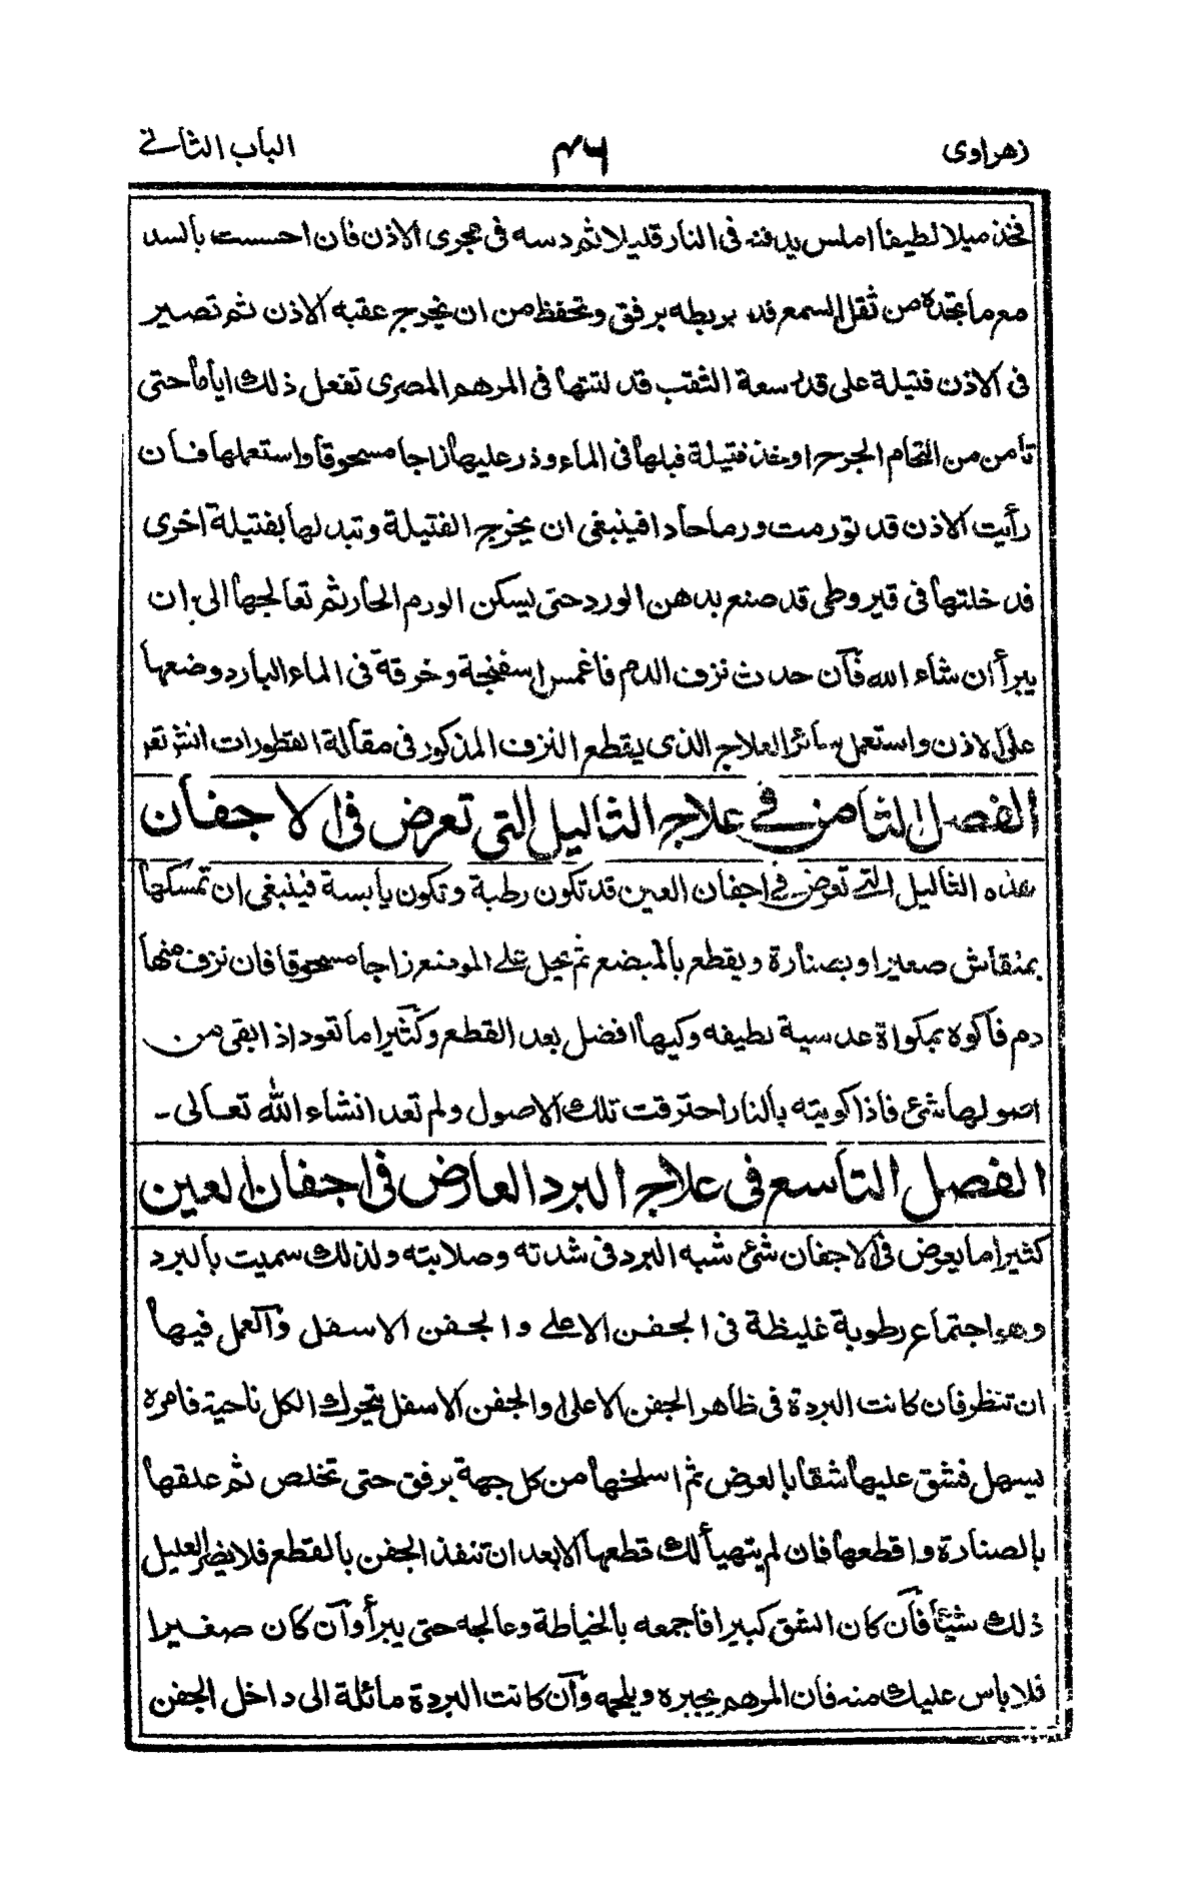 زهراوى ٣٦ الباب الثانے
فخذ ميلا لطيفا املس يدفنه فى النار قليلا ثم دسه فى مجرى الاذن فان احسست بالسد
مع ما تجده من ثقل السمع قد بربطه برفق وتحفظ من ان يخرج عقبه الاذن ثم تصير
فى الاذن فتيلة على قدر سعة الثقب قد لتتها فى المرهم المصرى تفعل ذلك اياما حتى
تأمن من التحام الجرح او خذ فتيلة فبلها فى الماء وذر عليها زاجا مسحوقا واستعملها فان
رأيت الاذن قد تورمت ورما حادا فينبغى ان يخرج الفتيلة وتبدلها بفتيلة اخرى
قد خلتها فى قيروطى قد صنع بدهن الورد حتى يسكن الورم الحار ثم تعالجها الى ان
يبرأ ان شاء الله فآن حدث نزف الدم فاغمس اسفنجة وخرقة فى الماء البارد وضعها
على الاذن واستعمل سائر العلاج الذى يقطع النزف المذكور فى مقالة القطورات انشر تعر
الفصل الثامن فے علاج الثاليل التى تعرض فى الاجفان
هذه الثاليل التے تعرض فے اجفان العين قد تكون رطبة وتكون يابسة فينبغى ان تمسكها
بمنقاش صغير او بصنارة ويقطع بالمبضع ثم يجل علے الموضع زاجا مسحوقا فان نزف منها
دم فاكوه بمكواة عدسية لطيفه وكيها افضل بعد القطع وكثيرا ما تعود اذا بقى من
اصولها شئ فاذا كويته بالنار احترقت تلك الاصول ولم تعد انشاء الله تعالى -
الفصل التاسع فى علاج البرد العارض فى اجفان العين
كثيرا ما يعرض فى الاجفان شئ شبه البرد فى شدته وصلابته ولذلك سميت بالبرد
وهو اجتماع رطوبة غليظة فى الجفن الاعلے والجفن الاسفل وآلعمل فيها
ان تنظر فان كانت البردة فى ظاهر الجفن الاعلى او الجفن الاسفل يتحرك الكل ناحية فامره
يسهل فشق عليها شقا بالعرض ثم اسلخها من كل جهة برفق حتى تخلص ثم علقها
بالصنارة واقطعها فان لم يتهيأ لك قطعها الا بعد ان تنفذ الجفن بالقطع فلا يضر العليل
ذلك شيئا فآن كان الشق كبيرا فاجمعه بالخياطة وعالجه حتى يبرأ وآن كان صغيرا
فلا باس عليك منه فان المرهم يجبره ويلحمه وآن كانت البردة مائلة الى داخل الجفن